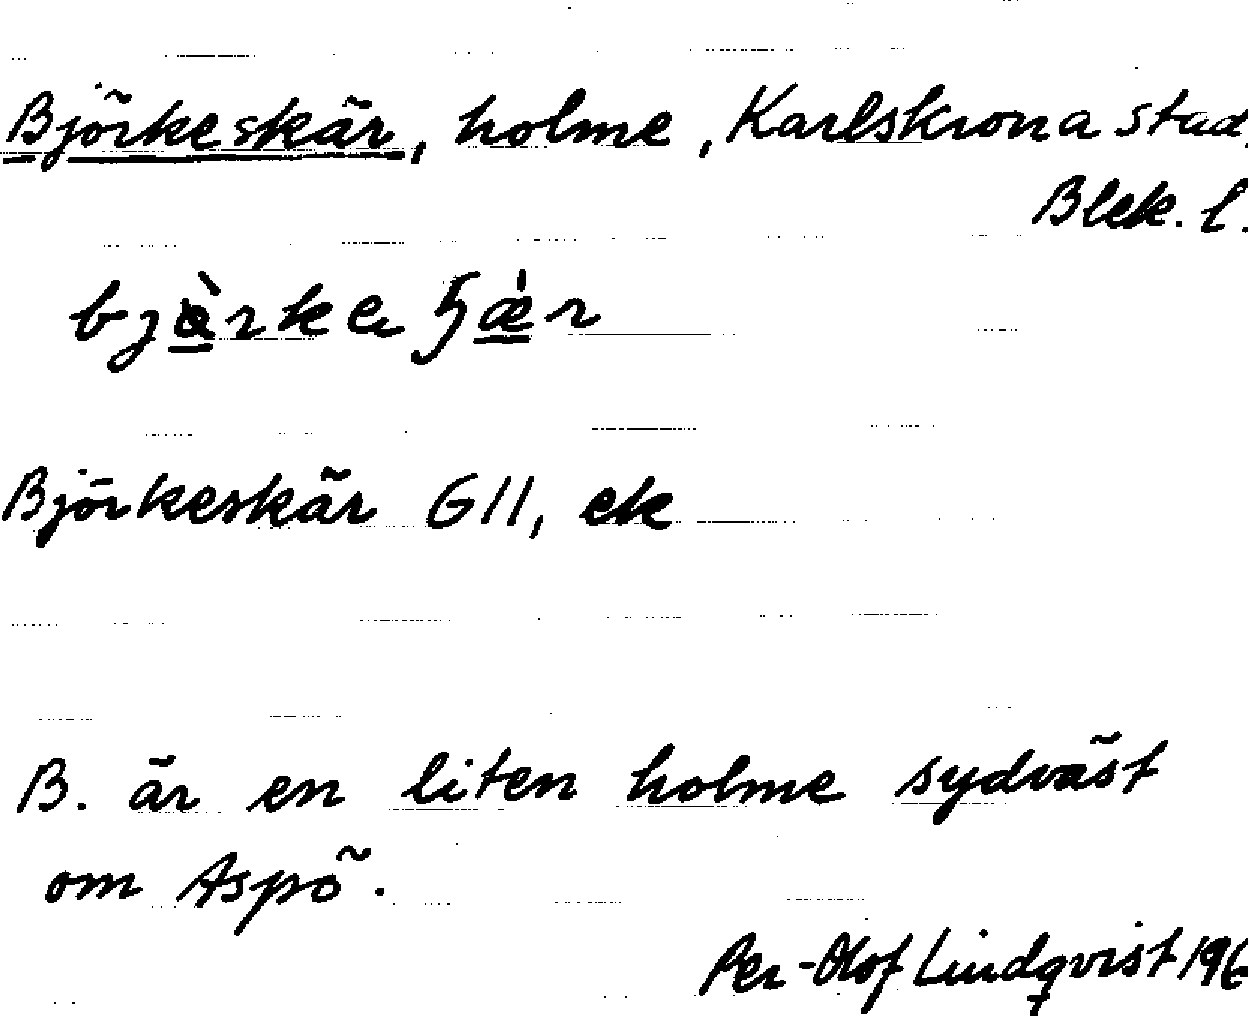 Björkeskär, holme, Karlskrona stad,
Blek. l.
Björkeskär GII, ek
B. är en liten holme sydväst
om Aspö.
Per-Olof Lindqvist 196